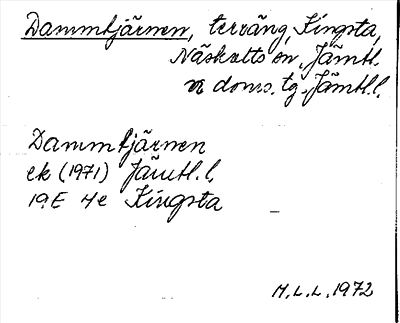 Dammtjärnen, terräng, Kingsta,
Näskotts sn, Jämtl.
n doms. tg, Jämtl. l.
Dammtjärnen
ek (1971) Jämtl. l.
19E 4e Kingsta
H.L.L. 1972